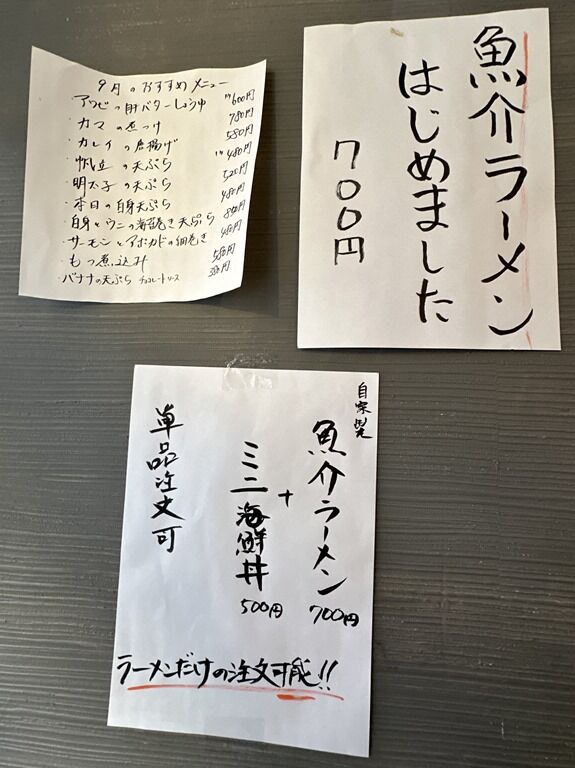 9月のおすすめメニュー
・アワビの肝バターしょうゆ 600円
・カマの煮つけ 780円
・カレイの唐揚げ 580円
・帆立の天ぷら 480円
・明太子の天ぷら 520円
・本日の白身天ぷら 480円
・白身とウニの海苔巻き天ぷら
・サーモンとアボカドの細巻き 480円
・もつ煮込み 580円
・バナナの天ぷら チョコレートソース
魚介ラーメン
はじめました
700円
自家製
魚介ラーメン 700円
+
ミニ海鮮丼 500円
単品注文可
ラーメンだけの注文可能!!